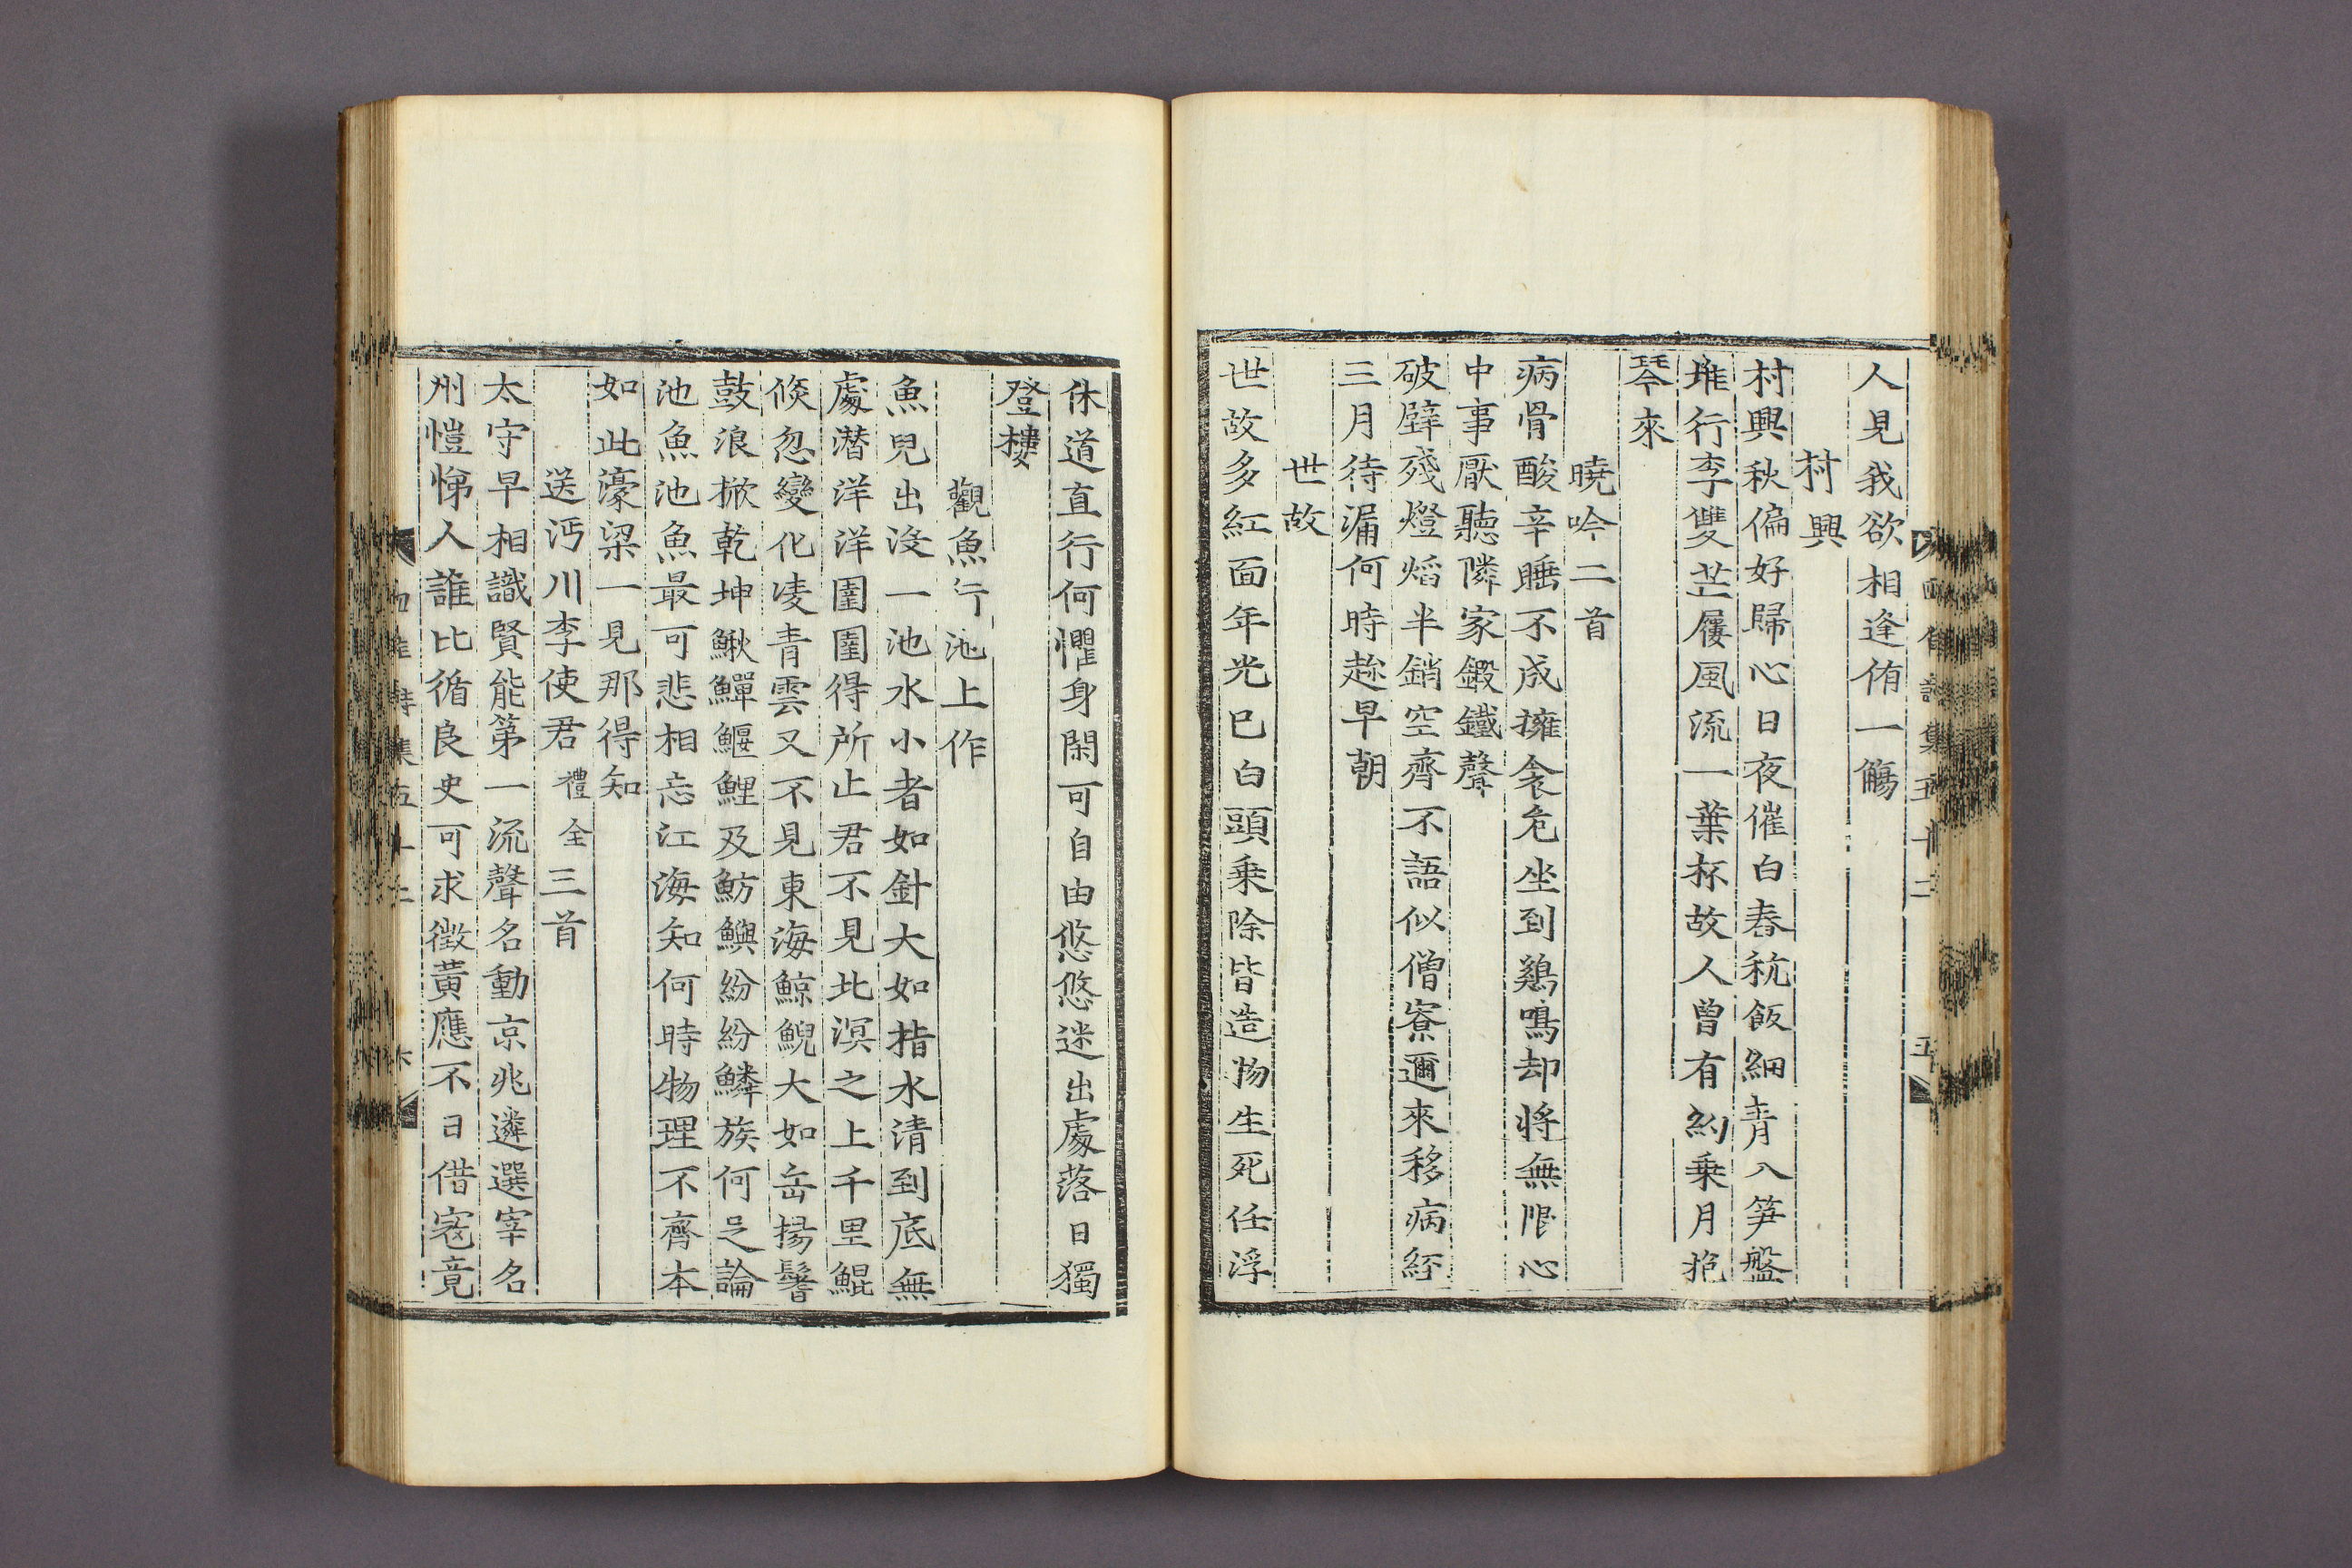 人見我欲相逢侑一觴
村興
村興秋偏好歸心日夜催白舂秔飯細青入笋盤
堆行李雙芒屨風流一葉杯故人曾有約乗月抱
琴來
曉吟二首
病骨酸辛睡不成擁衾危坐到鷄鳴却將無限心
中事厭聽隣家鍛鐵聲
破壁殘燈熖半銷空齋不語似僧寮邇來移病経
三月待漏何時趂早朝
世故
世故多紅面年光已白頭乗除皆造物生死任浮
休道直行何懼身閑可自由悠悠迷出處落日獨
登樓
觀魚行池上作
魚兒出沒一池水小者如針大如指水清到底無
處潛洋洋圉圉得所止君不見北溟之上千里鯤
倐忽變化凌青雲又不見東海鯨鯢大如岳揚鬐
鼓浪掀乾坤鰍鱓鰋鯉及魴鱮紛紛鱗族何足論
池魚池魚最可悲相忘江海知何時物理不齊本
如此濠梁一見那得知
送沔川李使君禮全三首
太守早相識賢能第一流聲名動京兆遴選宰名
州愷悌人誰比循良史可求徵黃應不日借寇竟